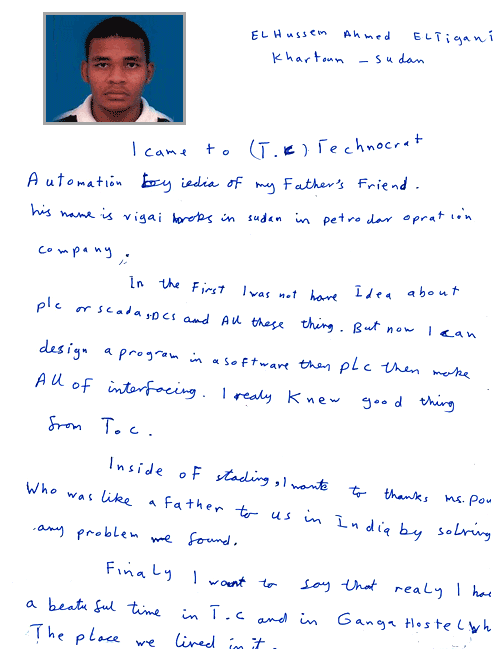 ELHussem Ahmed ELTigani
Khartoum - Sudan
I came to (T.C) Technocrat
Automation by iedia of my Father's Friend.
his name is vigai works in sudan in petrodar opration
company.
In the First I was not have Idea about
plc or scada, DCS and All these thing. But now I can
design a program in a software then plc then make
All of interfacing. I realy Knew good thing
from T.C.
Inside of stading, I want to thanks ms. pou
Who was like a Father to us in India by solving
any problem we found.
Finaly I want to say that realy I ha
a beatuful time in T.C and in Ganga Hostel wh
The place we lived in it.